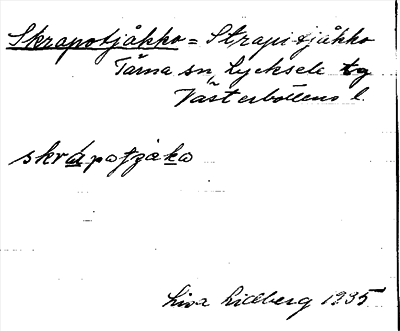 Skrapotjåkko = Strapitjåkko
Tärna sn, Lycksele tg
Västerbottens l.
skrápotjako
Liva Lillberg 1935